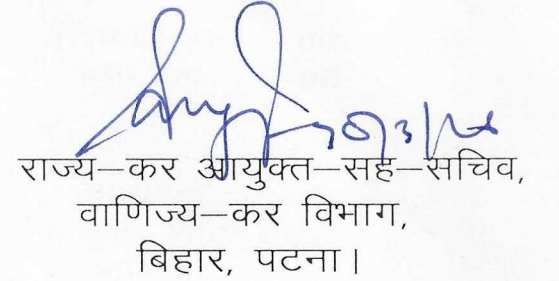 राज्य–कर आयुक्त–सह–सचिव,
वाणिज्य–कर विभाग,
बिहार, पटना।